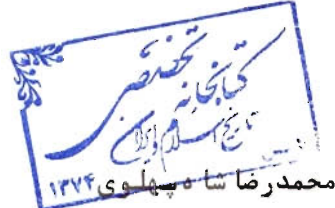 کتابخانه تخصصی
تاریخ اسلام و ایران
۱۳۷۴
محمدرضا شاه پهلوی